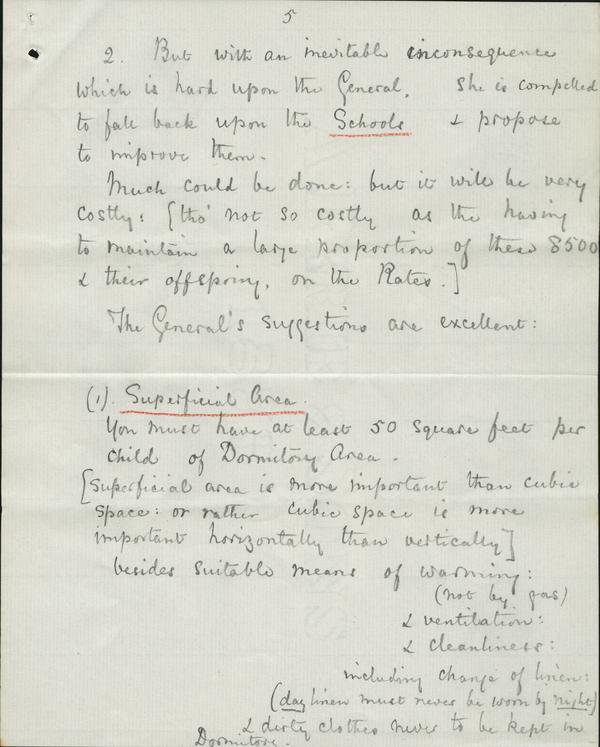 5
2. But with an inevitable inconsequence
which is hard upon the General, She is compelled
to fall back upon the Schools & propose
to improve them.
Much could be done: but it will be very
costly: [tho' not so costly as the having
to maintain a large proportion of these 8500
& their offspring, on the Rates.]
The General's suggestions are excellent:
(1). Superficial Area.
You must have at least 50 square feet per
child of Dormitory Area.
[Superficial area is more important than cubic
space: or rather cubic space is more
important horizontally than vertically]
besides suitable means of warming:
(not by gas)
& ventilation:
& cleanliness:
including change of linen:
(day linen must never be worn by night)
& dirty clothes never to be kept in
Dormitory.